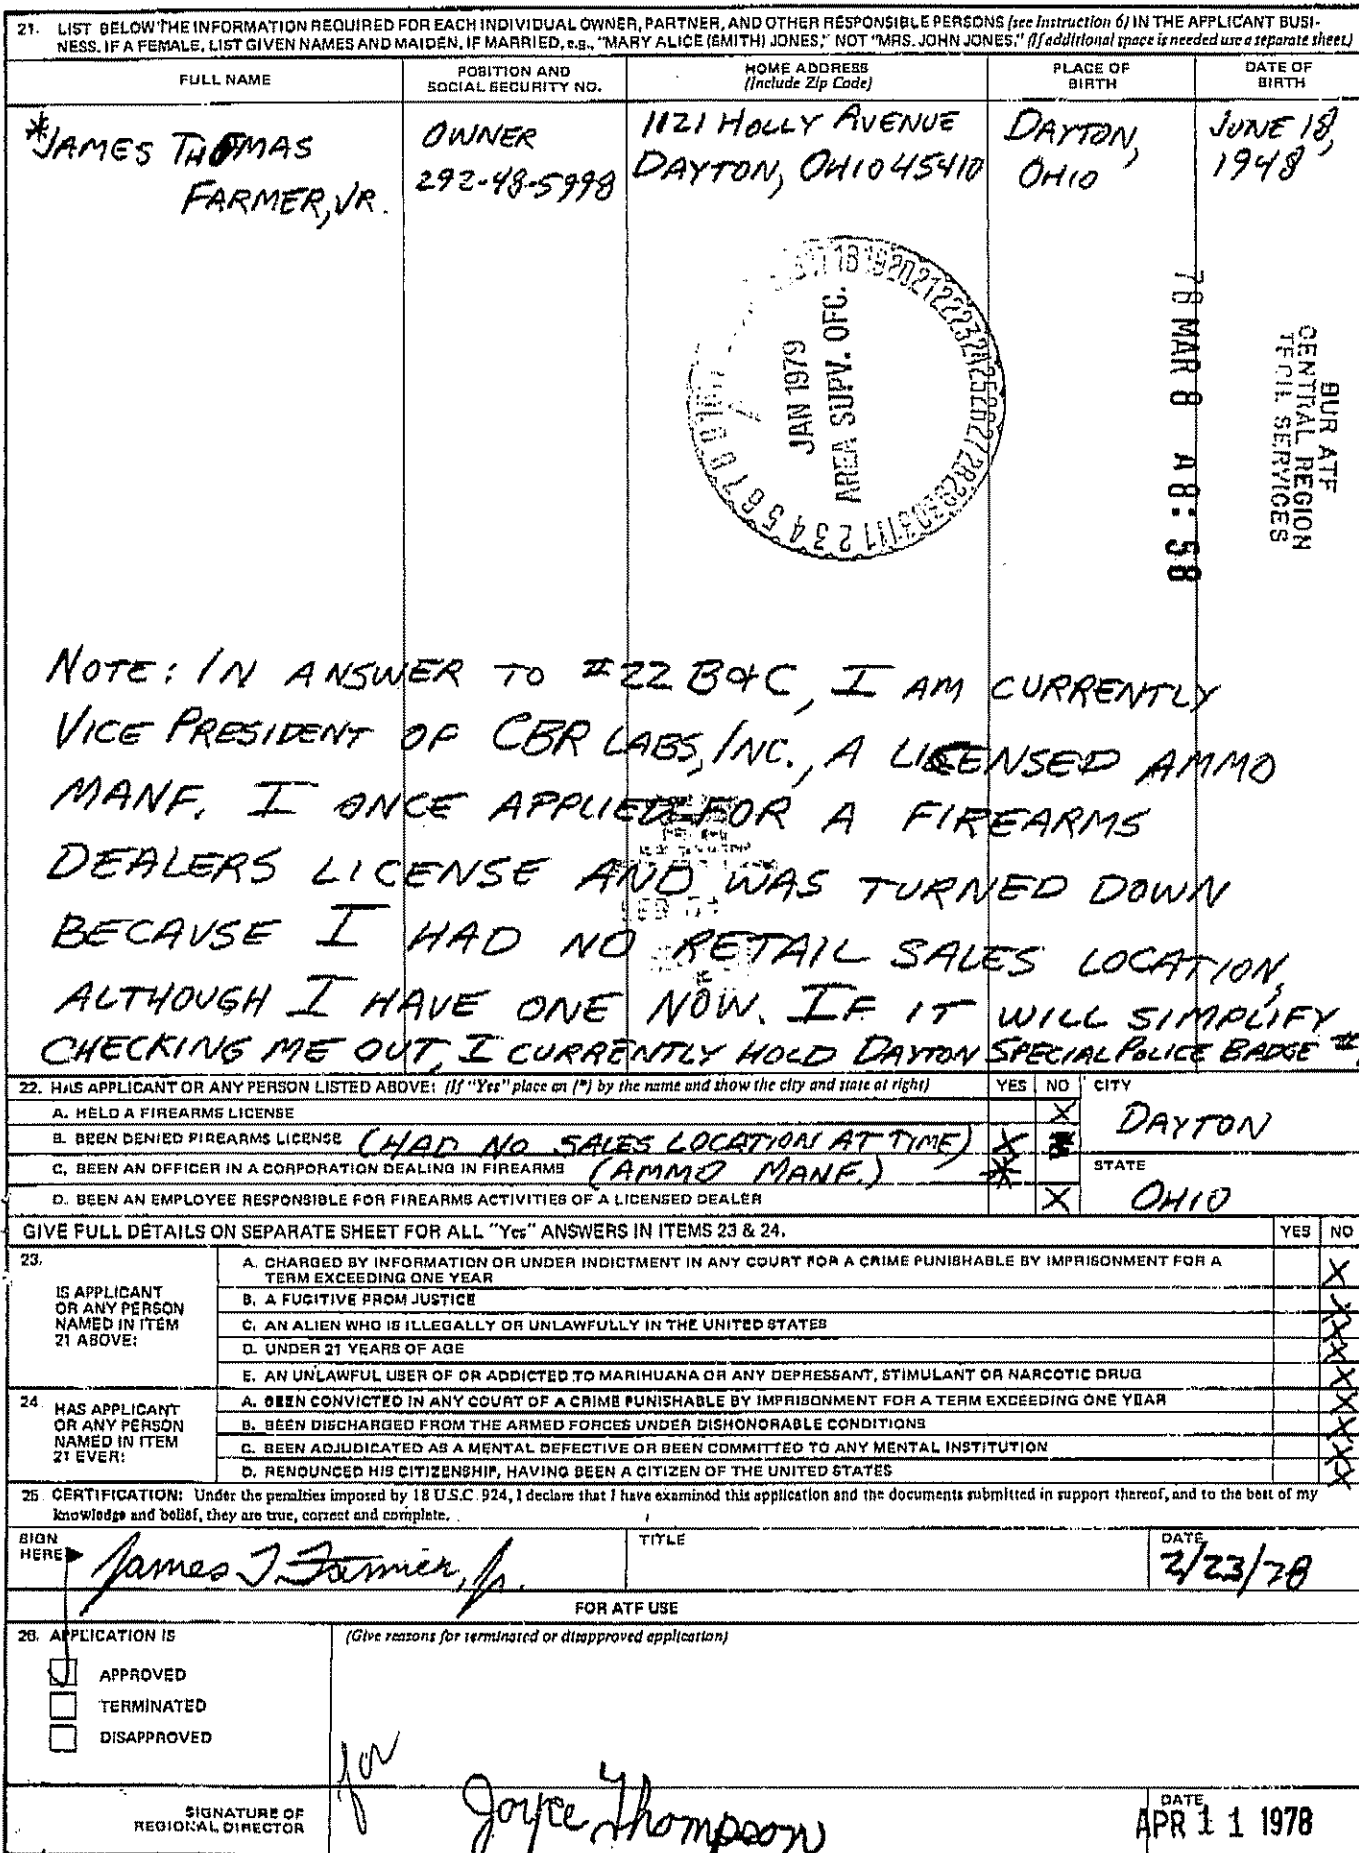 21. LIST BELOW THE INFORMATION REQUIRED FOR EACH INDIVIDUAL OWNER, PARTNER, AND OTHER RESPONSIBLE PERSONS (see Instruction 6) IN THE APPLICANT BUSI-
NESS. IF A FEMALE, LIST GIVEN NAMES AND MAIDEN, IF MARRIED, e.g., "MARY ALICE (SMITH) JONES," NOT "MRS. JOHN JONES." (If additional space is needed use a separate sheet)
FULL NAME
POSITION AND
SOCIAL SECURITY NO.
HOME ADDRESS
(Include Zip Code)
PLACE OF
BIRTH
DATE OF
BIRTH
*JAMES THOMAS
FARMER, JR.
OWNER
292-48-5998
1121 HOLLY AVENUE
DAYTON, OHIO 45410
DAYTON,
OHIO
JUNE 18,
1948
JAN 1979
AREA SUPV. OFC.
78 MAR 8 A8:58
BUR ATF
CENTRAL REGION
TECH. SERVICES
NOTE: IN ANSWER TO #22 B&C, I AM CURRENTLY
VICE PRESIDENT OF CBR LABS, INC., A LICENSED AMMO
MANF. I ONCE APPLIED FOR A FIREARMS
DEALERS LICENSE AND WAS TURNED DOWN
BECAUSE I HAD NO RETAIL SALES LOCATION,
ALTHOUGH I HAVE ONE NOW. IF IT WILL SIMPLIFY
CHECKING ME OUT, I CURRENTLY HOLD DAYTON SPECIAL POLICE BADGE #
22. HAS APPLICANT OR ANY PERSON LISTED ABOVE: (If "Yes" place an (*) by the name and show the city and state at right)
YES NO CITY
A. HELD A FIREARMS LICENSE X
DAYTON
B. BEEN DENIED FIREARMS LICENSE (HAD NO SALES LOCATION AT TIME) X
C. BEEN AN OFFICER IN A CORPORATION DEALING IN FIREARMS (AMMO MANF.) X
STATE
OHIO
D. BEEN AN EMPLOYEE RESPONSIBLE FOR FIREARMS ACTIVITIES OF A LICENSED DEALER X
GIVE FULL DETAILS ON SEPARATE SHEET FOR ALL "Yes" ANSWERS IN ITEMS 23 & 24.
YES NO
23.
IS APPLICANT
OR ANY PERSON
NAMED IN ITEM
21 ABOVE:
A. CHARGED BY INFORMATION OR UNDER INDICTMENT IN ANY COURT FOR A CRIME PUNISHABLE BY IMPRISONMENT FOR A
TERM EXCEEDING ONE YEAR X
B. A FUGITIVE FROM JUSTICE X
C. AN ALIEN WHO IS ILLEGALLY OR UNLAWFULLY IN THE UNITED STATES X
D. UNDER 21 YEARS OF AGE X
E. AN UNLAWFUL USER OF OR ADDICTED TO MARIHUANA OR ANY DEPRESSANT, STIMULANT OR NARCOTIC DRUG X
24
HAS APPLICANT
OR ANY PERSON
NAMED IN ITEM
21 EVER:
A. BEEN CONVICTED IN ANY COURT OF A CRIME PUNISHABLE BY IMPRISONMENT FOR A TERM EXCEEDING ONE YEAR X
B. BEEN DISCHARGED FROM THE ARMED FORCES UNDER DISHONORABLE CONDITIONS X
C. BEEN ADJUDICATED AS A MENTAL DEFECTIVE OR BEEN COMMITTED TO ANY MENTAL INSTITUTION X
D. RENOUNCED HIS CITIZENSHIP, HAVING BEEN A CITIZEN OF THE UNITED STATES X
25. CERTIFICATION: Under the penalties imposed by 18 U.S.C. 924, I declare that I have examined this application and the documents submitted in support thereof, and to the best of my
knowledge and belief, they are true, correct and complete.
SIGN
HERE
James T. Farmer, Jr.
TITLE
DATE
2/23/78
FOR ATF USE
26. APPLICATION IS
(Give reasons for terminated or disapproved application)
APPROVED
TERMINATED
DISAPPROVED
SIGNATURE OF
REGIONAL DIRECTOR
for
Joyce Thompson
DATE
APR 11 1978